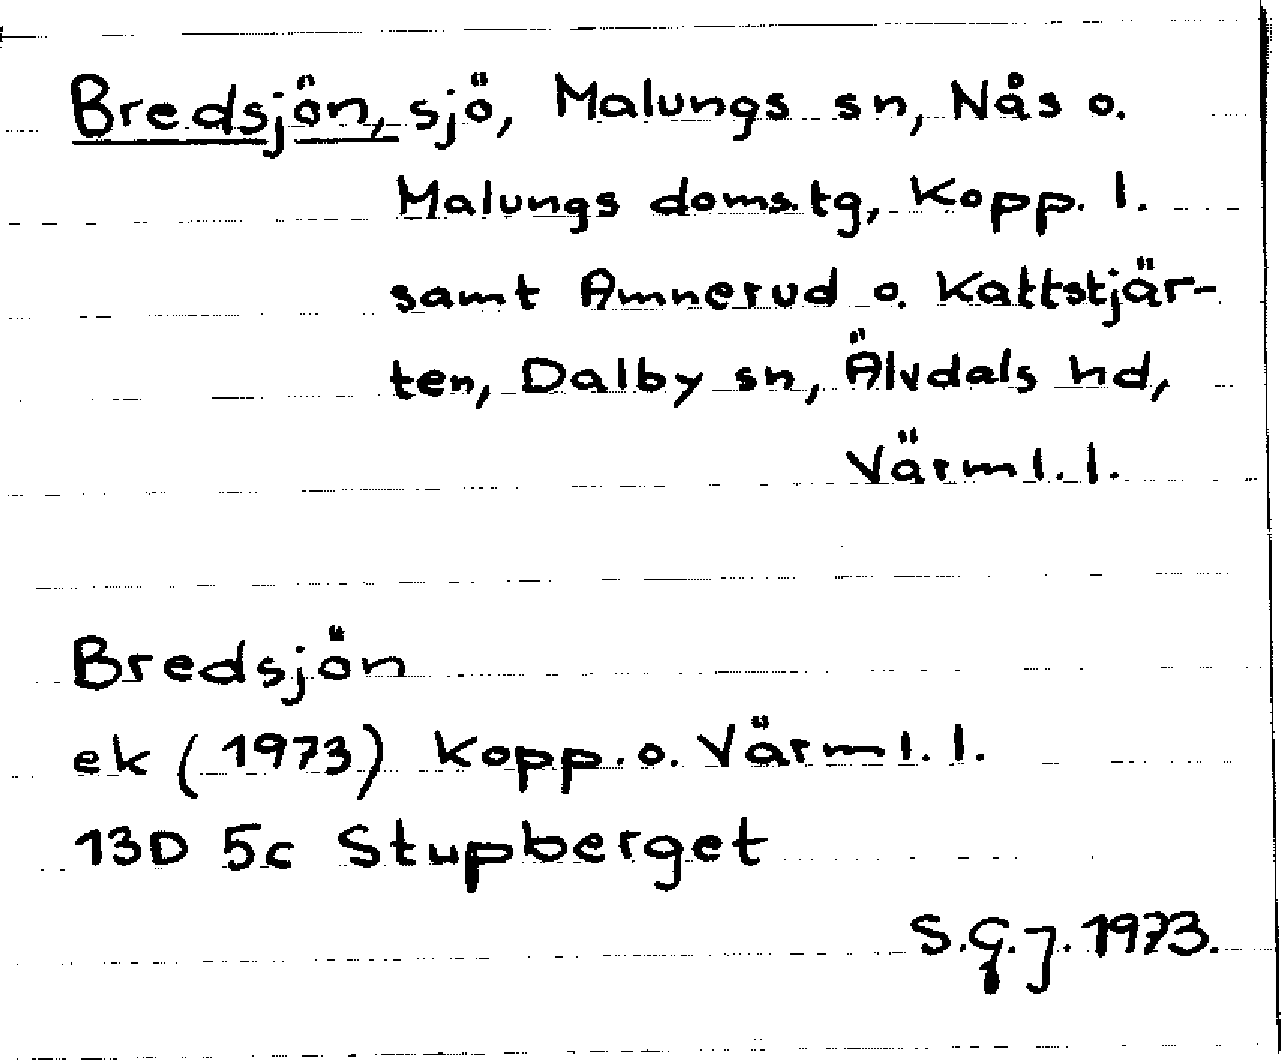 Bredsjön, sjö, Malungs sn, Nås o.
Malungs doms.tg, Kopp. l.
samt Amnerud o. Kattstjär-
ten, Dalby sn, Älvdals hd,
Värml. l.
Bredsjön
ek (1973) Kopp. o. Värml. l.
13D 5c Stupberget
S.G.J. 1973.